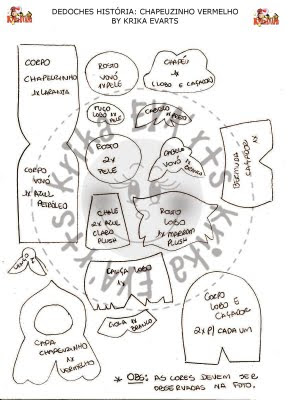 DEDOCHES HISTÓRIA: CHAPEUZINHO VERMELHO
BY KRIKA EVARTS
CORPO
CHAPEUZINHO
1x LARANJA
ROSTO
VOVÓ
1x PELE
CHAPÉU
1x
(LOBO E CAÇADOR)
LOBO 1x
PELE
CABELO
ROSTO
2x
PELE
CABELO
VOVÓ 1x
BRANCO
BERMUDA
CAÇADOR
1x
CORPO
VOVÓ
1x AZUL
PETRÓLEO
CHALE
2x AZUL
CLARO
PLUSH
ROSTO
LOBO
1x MARROM
PLUSH
CALÇA LOBO
1x
CAPA
CHAPEUZINHO
1x
VERMELHO
GOLA 1x
BRANCO
CORPO
LOBO E
CAÇADOR
2x P/ CADA UM
* OBS: AS CORES DEVEM SER
OBSERVADAS NA FOTO.
Krika Evarts